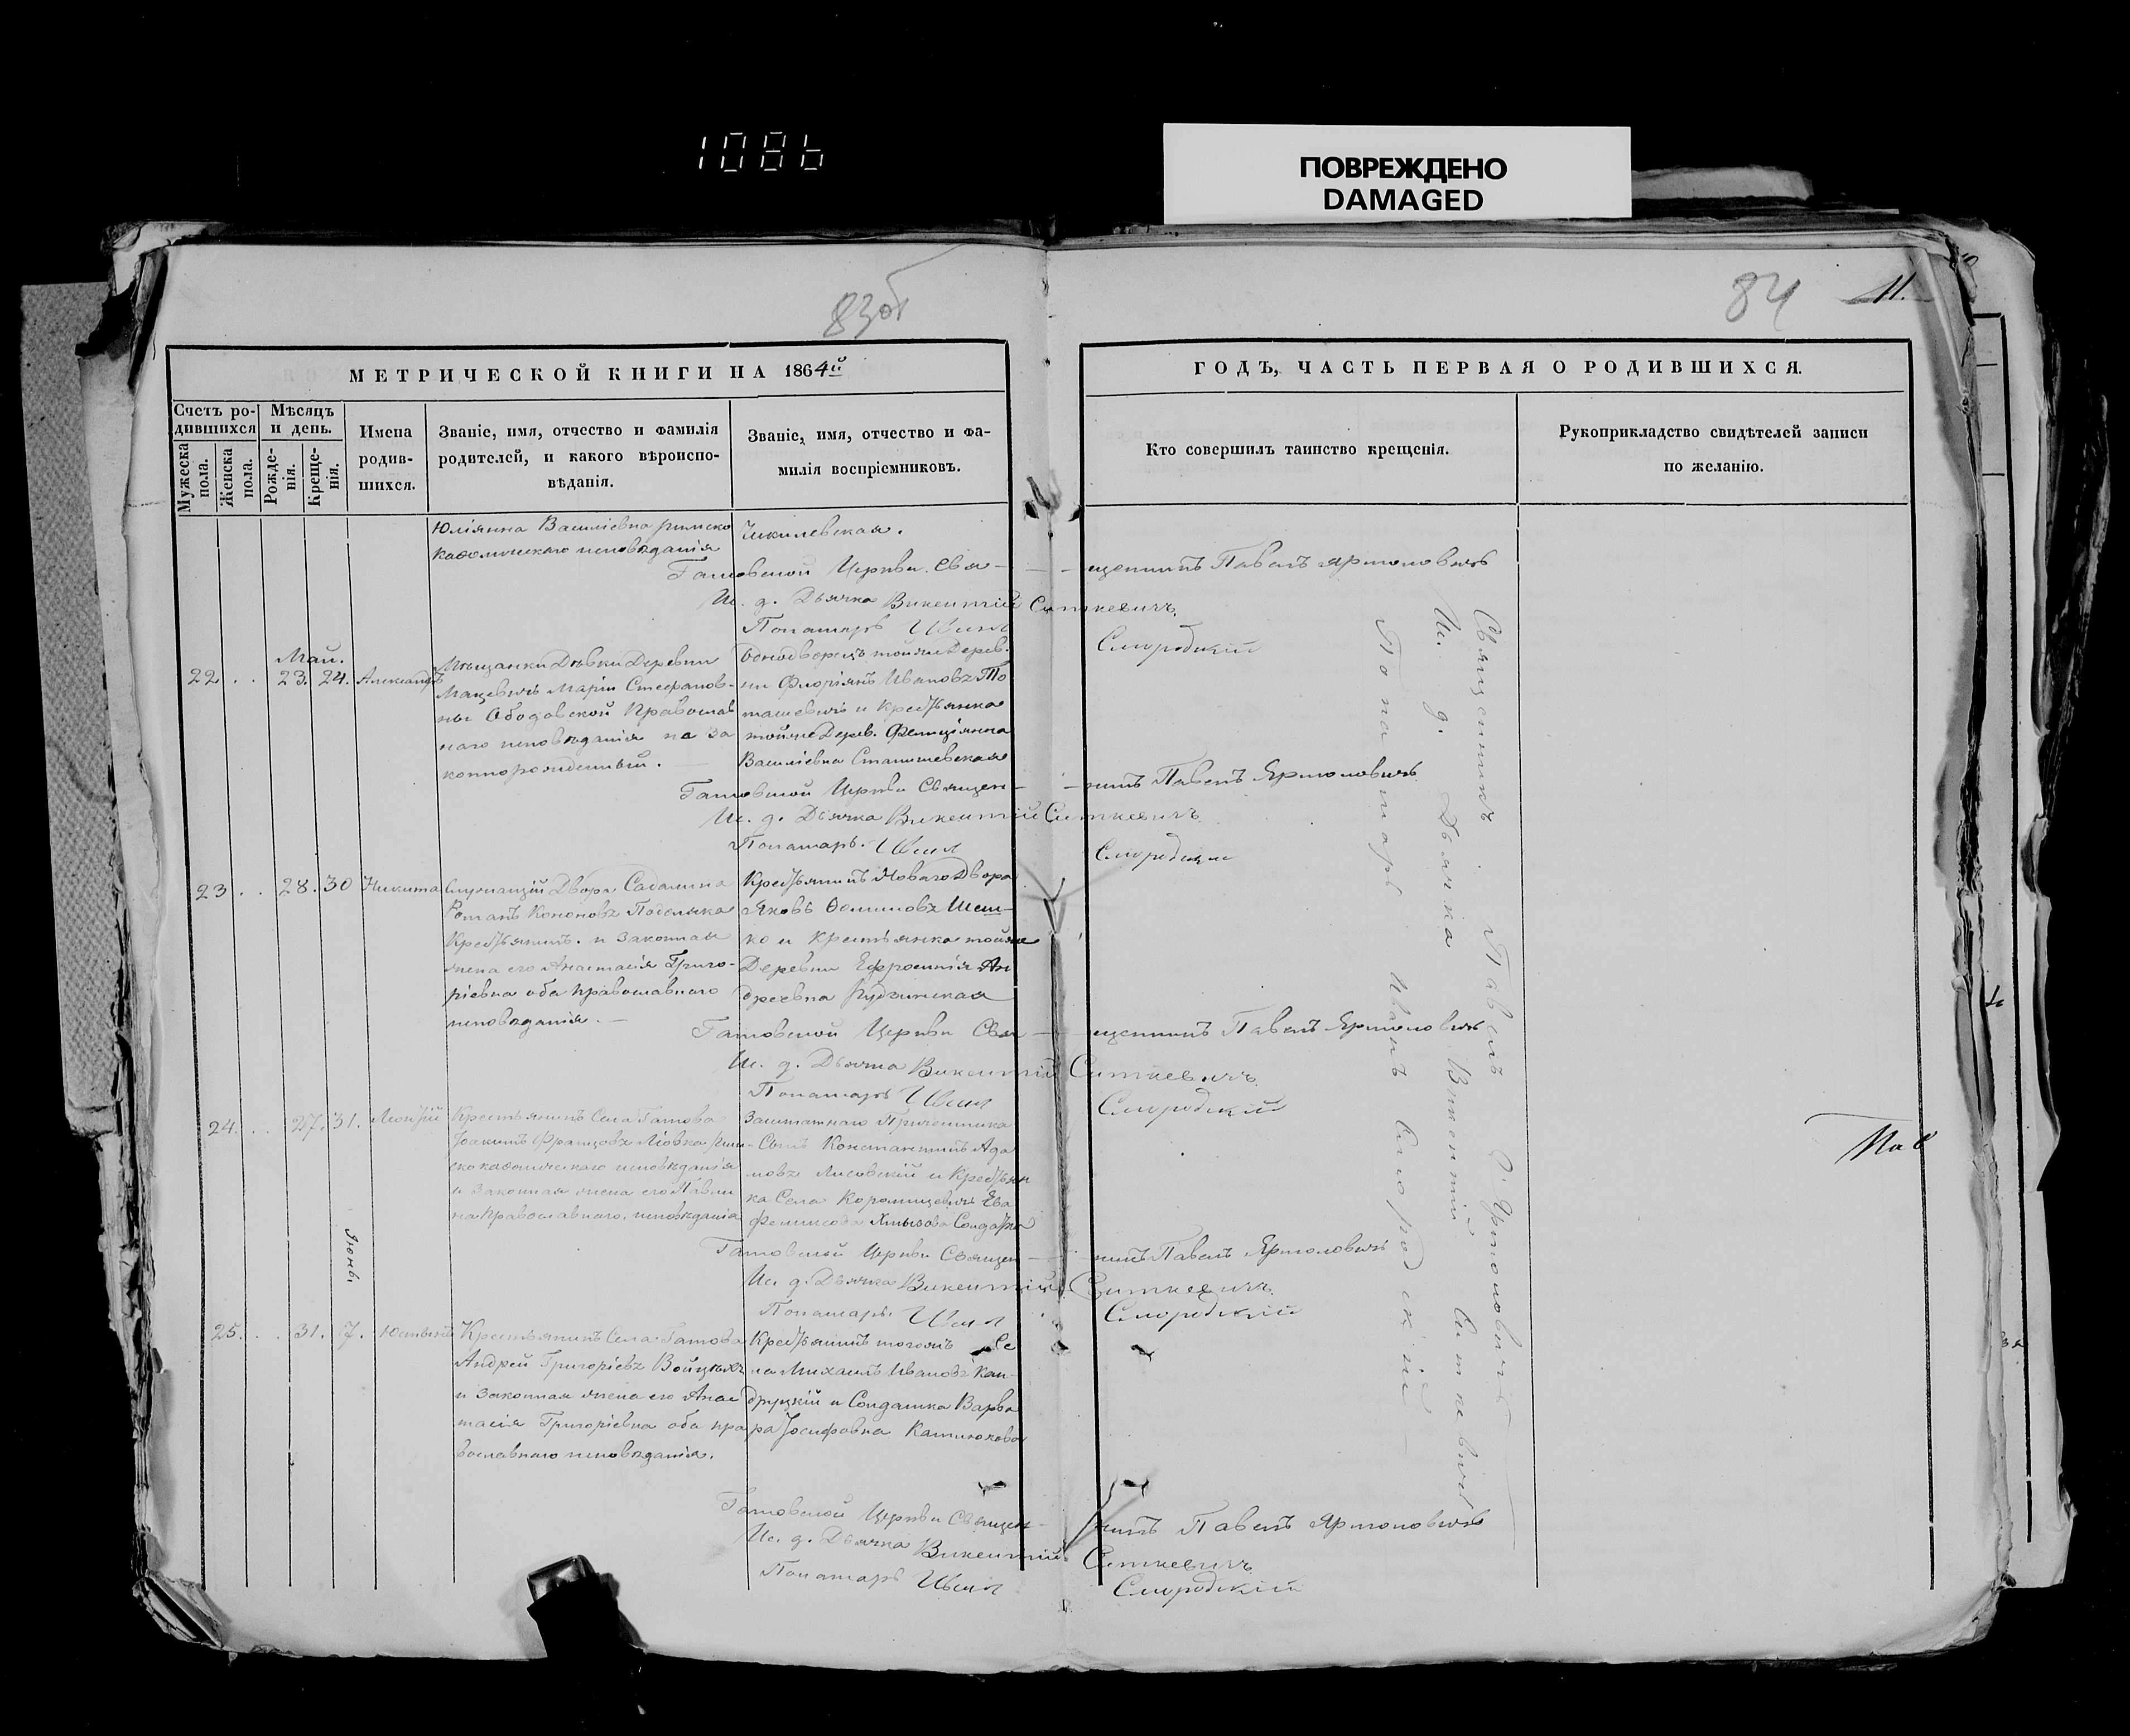 1086
ПОВРЕЖДЕНО
DAMAGED
83об
84
11.
МЕТРИЧЕСКОЙ КНИГИ НА 1864й
ГОДЪ, ЧАСТЬ ПЕРВАЯ О РОДИВШИХСЯ.
Счетъ ро-
дившихся
Мужеска пола.
Женска пола.
Мѣсяцъ
и день.
Рожде-
нія.
Креще-
нія.
Имена
родив-
шихся.
Званіе, имя, отчество и фамилія
родителей, и какого вѣроиспо-
вѣданія.
Званіе, имя, отчество и фа-
милія воспріемниковъ.
Кто совершилъ таинство крещенія.
Рукоприкладство свидѣтелей записи
по желанію.
Юліянна Василіевна римско
католическаго исповѣданія
Гатовской Церкви Свя-
щенникъ Павелъ Ярмоловичъ
И. д. Дьячка Викентій Ситкевичъ
Пономарь Иванъ
Смородскій
Май.
22 . . 23. 24. Александръ
Мѣщанки Дѣвки Деревни
Мацевичь Маріи Стефанов-
ны Ободовской Православ
наго исповѣданія не за
коннорожденный.
Однодворецъ тойже Дерев.
ни Флоріянъ Ивановъ То
машевичь и Крестьянка
тойже Дерев. Фелиціянна
Василіевна Станишевская
Гатовской Церкви Священ-
никъ Павелъ Ярмоловичъ
И. д. Дьячка Викентій Ситкевичъ
Пономарь. Иванъ
Смородскій
23 . . 28. 30 Никита
Служащій Двора
Романъ Кононовъ
Крестьянинъ. и Законная
жена его Анастасія Григо-
ріевна оба православнаго
исповѣданія. —
Крестьянинъ Новаго Двора
Яковъ Фоминовъ Шеш-
ко и Крестьянка тойже
Деревни Ефросинія Ан
дреевна Рудзинская
Гатовской Церкви Свя-
щенникъ Павелъ Ярмоловичъ
И. д. Дьячка Викентій Ситкевичъ
Пономарь Иванъ
Смородскій
24. . . 27. 31. Леонтій
Крестьянинъ Села Гатова
Іоакимъ Францовъ Рим-
скокатолическаго исповѣданія
и Законная жена его Павли
на Православнаго. исповѣданія
Заштатнаго Причетника
Сынъ Константинъ Ада
мовъ Лисовскій и Крестьян
ка Села Королищевичь Ева
Феликсова Солдатка
Гатовской Церкви Священ-
никъ Павелъ Ярмоловичъ
И. д. Дьячка Викентій Ситкевичъ
Пономарь. Иванъ
Смородскій
Іюнь
25. . . 31. 7.
Крестьянинъ Села Гатова
Андрей Григоріевъ
и Законная жена его Анас
тасія Григоріевна оба пра
вославнаго исповѣданія.
Крестьянинъ тогожъ Се
ла Михаилъ Ивановъ Кан-
друцкій и Солдатка Варва
ра Іосифовна
Гатовской Церкви Священ-
никъ Павелъ Ярмоловичъ
И. д. Дьячка Викентій Ситкевичъ
Пономарь Иванъ
Смородскій
Священникъ Павелъ Ярмоловичъ
И. д. Дьячка Викентій Ситкевичъ
Пономарь Иванъ Смородскій